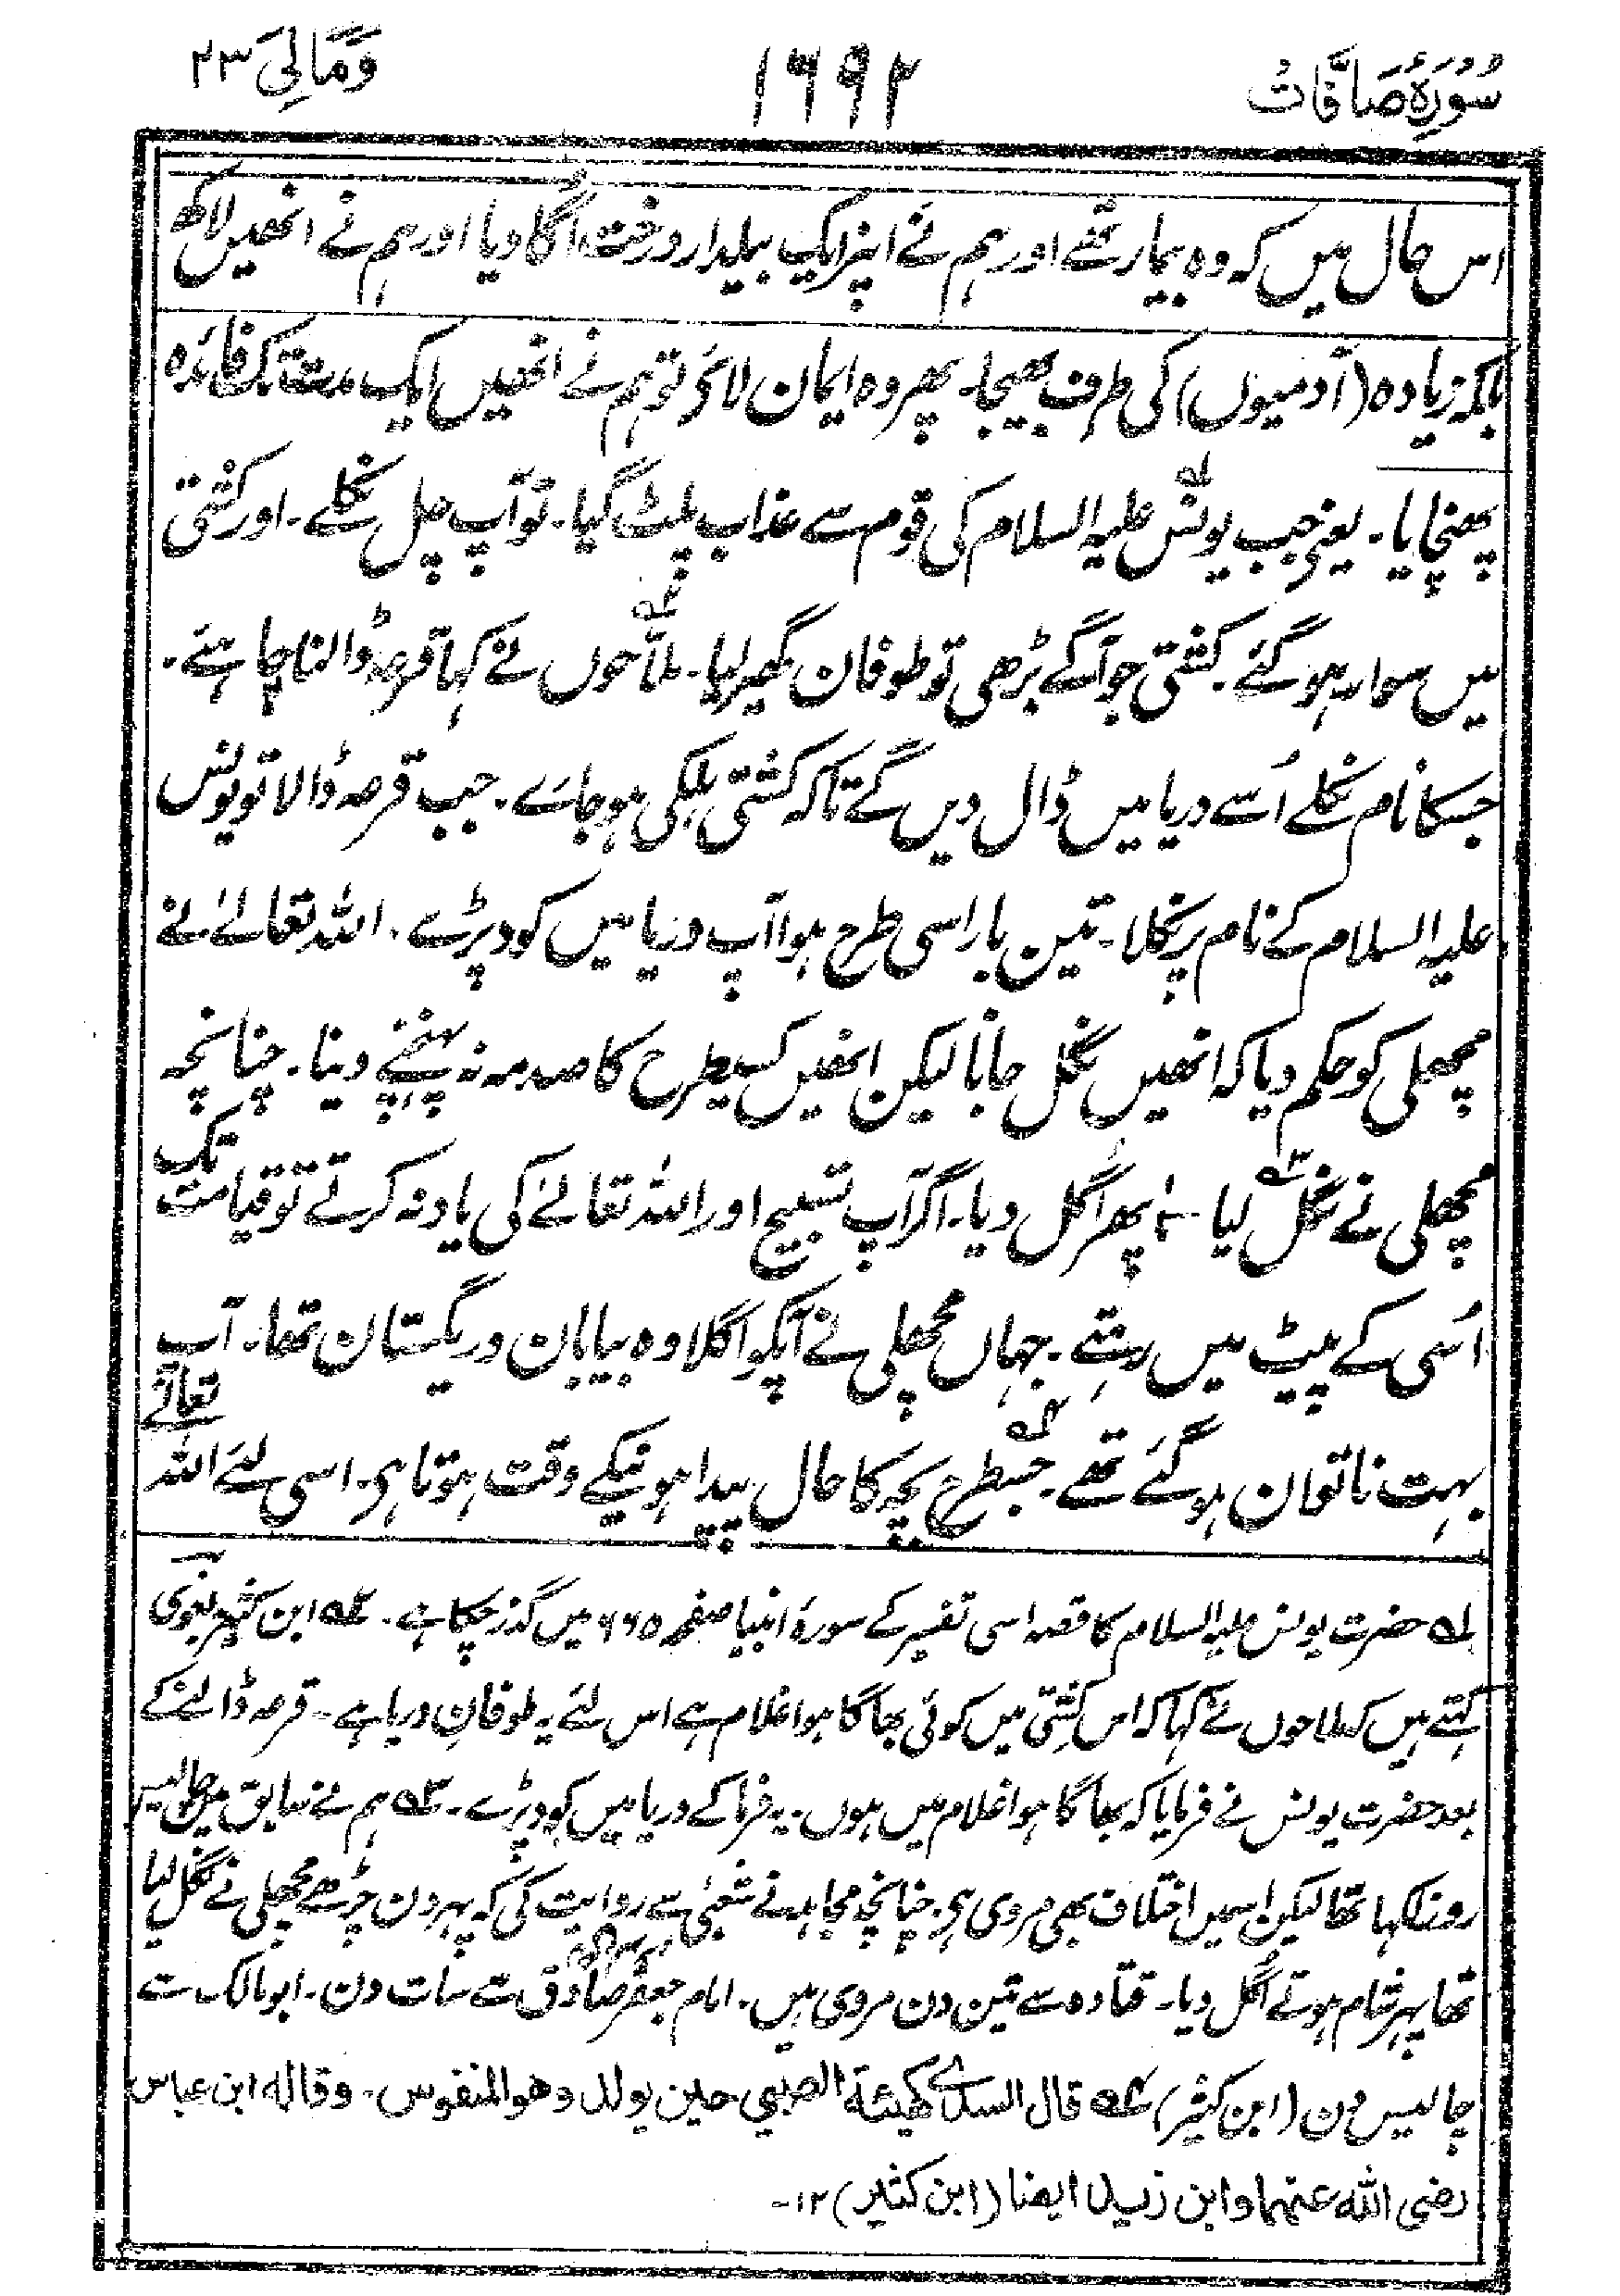 سُوْرَۃُ صَافَّاتُ
۱۶۹۲
وَمَالِیَ ۲۳
اس حال میں کہ وہ بیمار تھے اور ہم نے اپنر ایک بیلدار درخت اُگا دیا اور ہم نے انھیں لاکھ
بلکہ زیادہ (آدمیوں) کی طرف بھیجا۔ پھر وہ ایمان لائو تو ہم نے انھیں ایک مدت تک فائدہ
پھنچایا۔ یعنی جب یونس ؎۱ علیہ السلام کی قوم سے عذاب پلٹ گیا۔ تو آپ چل نکلے۔ اور کشتی
میں سوار ہو گئے۔ کشتی جو آگے بڑھی تو طوفان گھیر لیا۔ ملّاحوں ؎۲ نے کہا قرعہ ڈالنا چاہئے۔
جسکا نام نکلے اُسے دریا میں ڈال دیں گے تاکہ کشتی ہلکی ہو جاے۔ جب قرعہ ڈالا تو یونس
علیہ السلام کے نام پر نکلا۔ تین بار اسی طرح ہوا آپ دریا میں کود پڑے۔ اللہ تعالےٰ نے
مچھلی کو حکم دیا کہ انھیں نگل جانا لیکن انھیں کسیطرح کا صدمہ نہ پہنچنے دینا۔ چنانچہ
مچھلی نے نگل ؎۳ لیا پھر اُگل دیا۔ اگر آپ تسبیح اور اللہ تعالےٰ کی یاد نہ کرتے تو قیامت تک
اُسی کے پیٹ میں رہتے۔ جہاں مچھلی نے آپکو اگلا وہ بیابان و ریگستان تھا۔ آپ
بہت ناتوان ہو گئے تھے۔ جسطرح ؎۴ بچہ کا حال پیدا ہونیکے وقت ہوتا ہی۔ اسی لئے اللہ تعالےٰ
؎۱ حضرت یونس علیہ السلام کا قصہ اسی تفسیر کے سورۂ انبیا صفحہ ۶۶۵ میں گذر چکا ہے۔ ؎۲ ابن کثیر بغوی
کہتے ہیں کہ ملاحوں نے کہا کہ اس کشتی میں کوئی بھاگا ہوا غلام ہے اس لئے یہ طوفانِ دریا ہے۔ قرعہ ڈالنے کے
بعد حضرت یونس نے فرمایا کہ بھاگا ہوا غلام میں ہوں۔ یہ فرما کے دریا میں کود پڑے۔ ؎۳ ہم نے سابق میں چالیس
روز لکھا تھا لیکن اسمیں اختلاف بھی مروی ہی۔ چنانچہ مجاہد نے شعبی سے روایت کی کہ پہر دن چڑھے مچھلی نے نگل لیا
تھا پہر شام ہوتے اُگل دیا۔ قتادہ سے تین دن مروی ہیں۔ امام جعفر صادق سے سات دن۔ ابو مالک سے
چالیس دن (ابن کثیر) ؎۴ قال السدے کھیئۃ الصبی حین یولد وھو المنفوس۔ وقالہ ابن عباس
رضی اللہ عنہما وابن زید ایضا (ابن کثیر) ۱۲۔